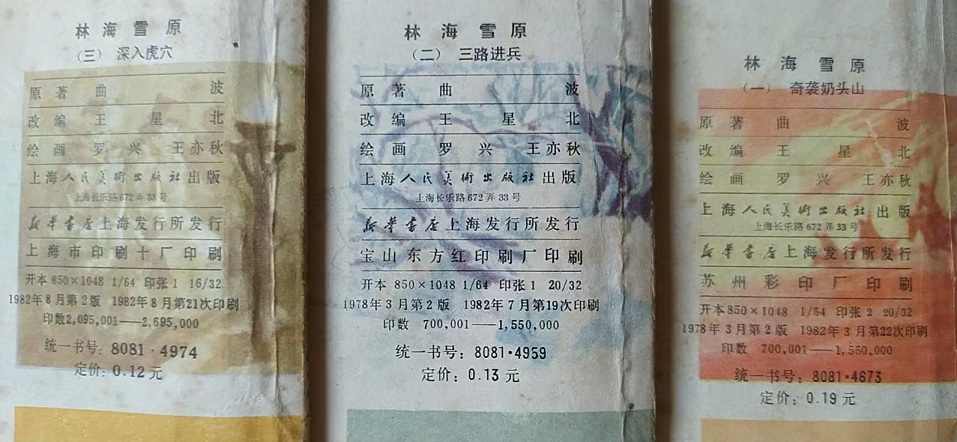 林海雪原
（三） 深入虎穴
原著 曲波
改编 王星北
绘画 罗兴 王亦秋
上海人民美術出版社出版
上海长乐路672弄33号
新华書店上海发行所发行
上海市印刷十厂印刷
开本850×1048 1/64 印张1 16/32
1982年8月第2版 1982年8月第21次印刷
印数2,095,001——2,695,000
统一书号：8081·4974
定价：0.12元
林海雪原
（二） 三路进兵
原著 曲波
改编 王星北
绘画 罗兴 王亦秋
上海人民美術出版社出版
上海长乐路672弄33号
新华書店上海发行所发行
宝山东方红印刷厂印刷
开本 850×1048 1/64 印张1 20/32
1978年3月第2版 1982年7月第19次印刷
印数 700,001——1,550,000
统一书号：8081·4959
定价：0.13元
林海雪原
（一） 奇袭奶头山
原著 曲波
改编 王星北
绘画 罗兴 王亦秋
上海人民美術出版社出版
上海长乐路672弄33号
新华書店上海发行所发行
苏州彩印厂印刷
开本850×1048 1/64 印张2 20/32
1978年3月第2版 1982年3月第22次印刷
印数 700,001——1,550,000
统一书号：8081·4673
定价：0.19元